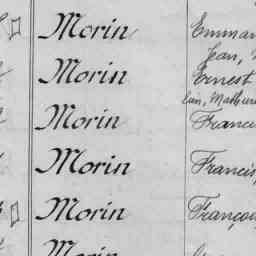 Morin Emman
Jean,
Morin Ernest
lin, Mathuri
Morin Franci
Morin Francis
Morin Françoi
Morin